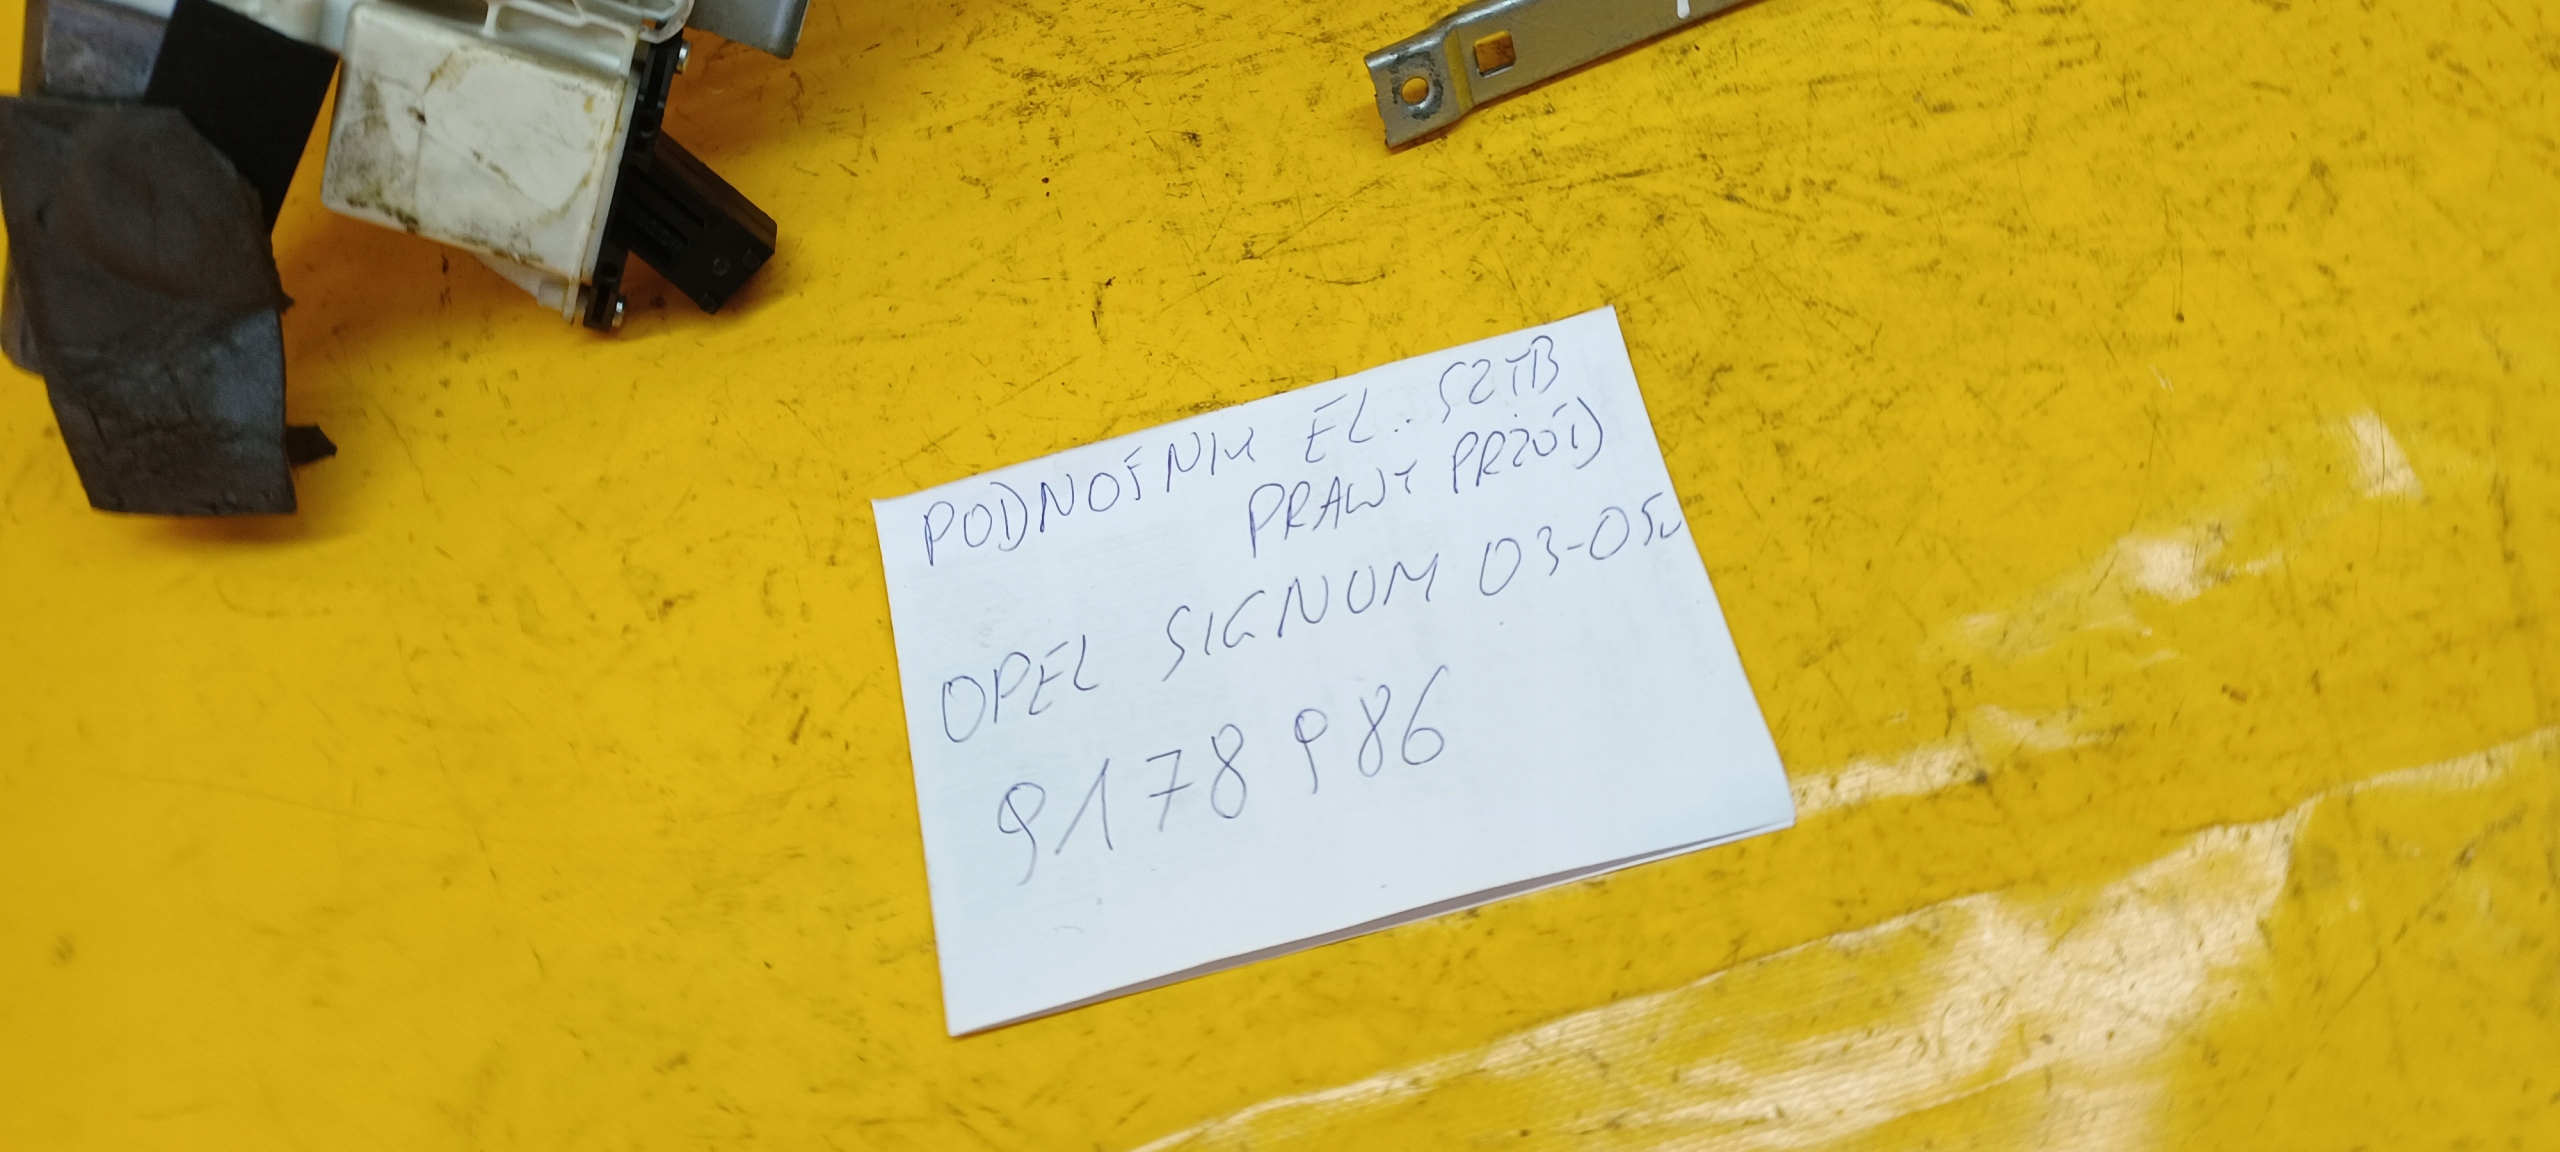 PODNOŚNIK EL.. SZYB
PRAWY PRZÓD
OPEL SIGNUM 03-05r
9178986